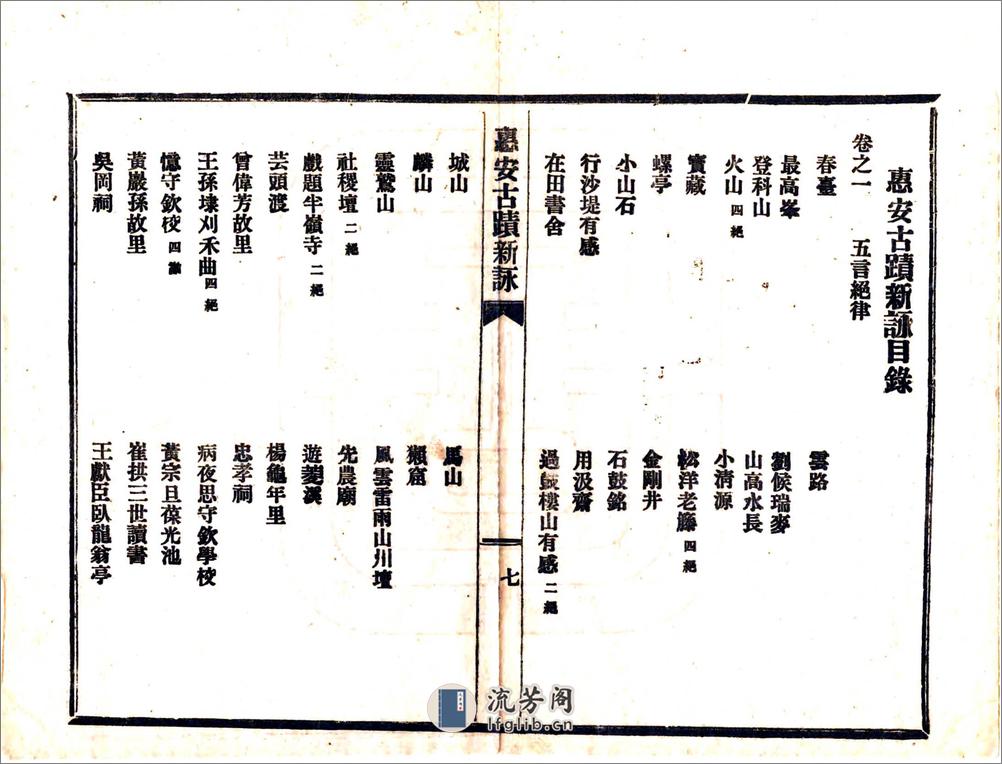 惠安古蹟新詠目錄
卷之一 五言絕律
春臺 雲路
最高峯 劉候瑞麥
登科山 山高水長
火山 四絕 小清源
寶藏 松洋老籐 四絕
螺亭 金剛井
小山石 石鼓銘
行沙堤有感 用汲齋
在田書舍 過皷樓山有感 二絕
惠安古蹟新詠
七
城山 馬山
麟山 獺窟
靈鷲山 風雲雷雨山川壇
社稷壇 二絕 先農廟
戲題半嶺寺 二絕 遊菱溪
芸頭渡 楊龜年里
曾偉芳故里 忠孝祠
王孫埭刈禾曲 四絕 病夜思守欽學校
憶守欽校 四 黃宗旦葆光池
黃巖孫故里 崔拱三世讀書
吳岡祠 王獻臣臥龍翁亭
流芳阁
lfglib.cn